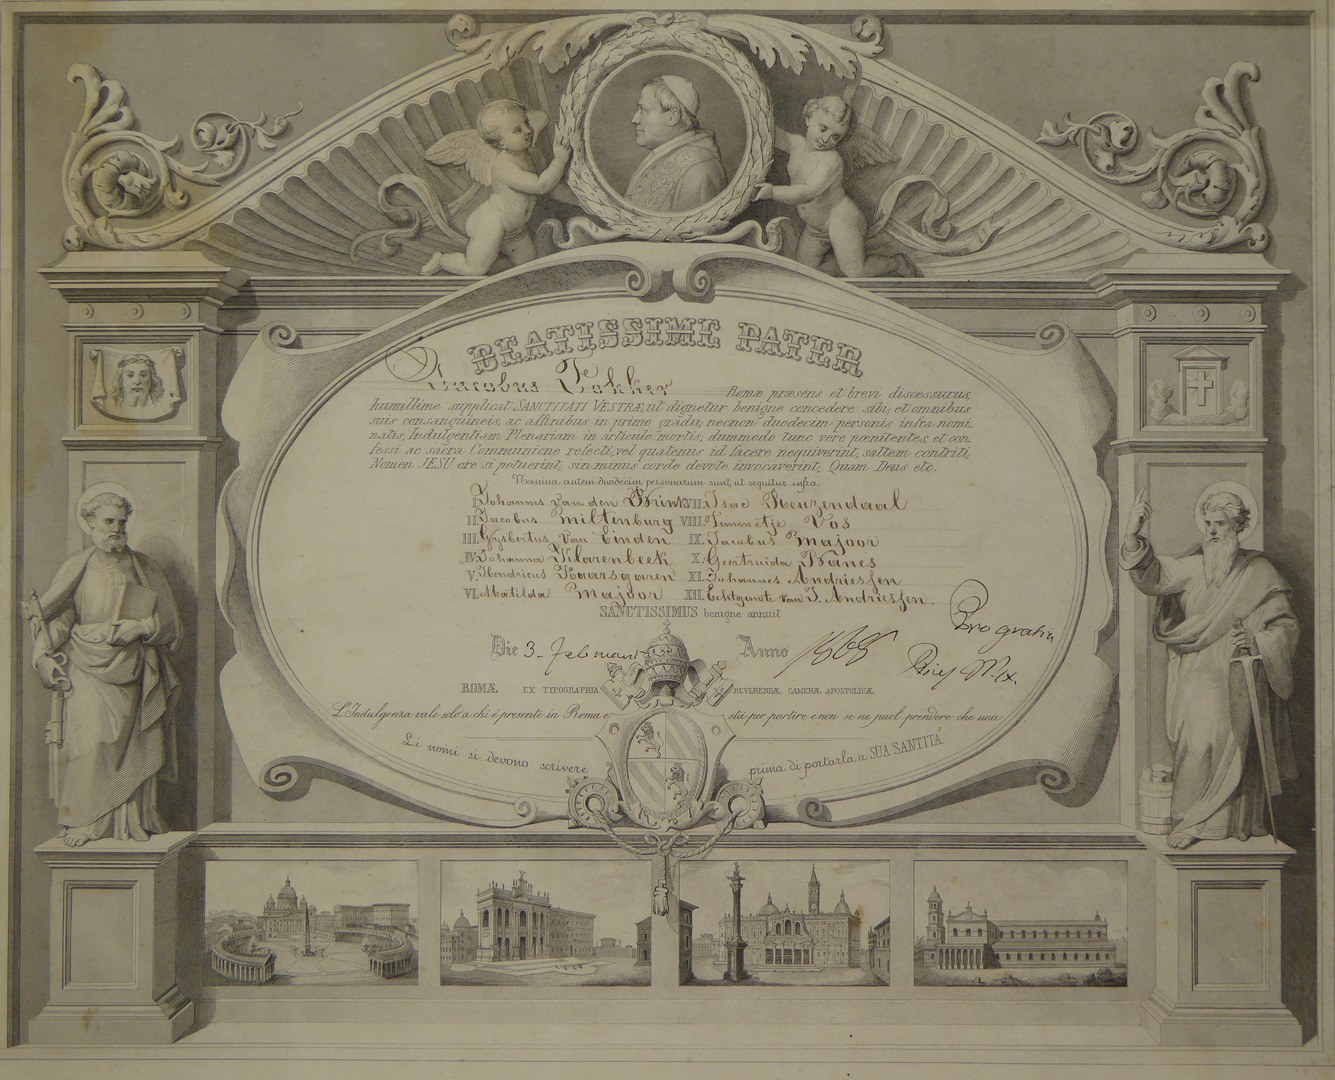 BEATISSIME PATER
Jacobus Fokker Romæ præsens et brevi discessurus,
humillime supplicat SANCTITATI VESTRÆ, ut dignetur benigne concedere sibi, et omnibus
suis consanguineis, ac affinibus in primo gradu, necnon duodecim personis infra nomi,
natis, Indulgentiam Plenariam in articulo mortis, dummodo tunc vere pœnitentes, et con,
fessi ac sacra Communione refecti, vel quatenus id facere nequiverint, saltem contriti,
Nomen JESU ore si potuerint, sin minus corde devote invocaverint, Quam Deus etc.
Nomina autem duodecim personarum sunt, ut sequitur infra
I. Johannes van den Brink VII. Isac Heuzendaal
II. Jacobus Miltenburg VIII. Vos
III. Gysbertus van Einden IX. Jacobus Majoor
IV. Johanna Klarenbeek X. Geertruida Wanes
V. Hendricus Haarsgaren XI. Johannes Andriessen
VI. Matilda Majoor XII. Echtgenote van J. Andriessen.
SANCTISSIMUS benigne annuit
Pro gratia
Die 3. Februarii Anno 1868
Pius PP. IX.
ROMÆ EX TYPOGRAPHIA REVERENDÆ CAMERÆ APOSTOLICÆ
L'Indulgenza vale solo a chi è presente in Roma e stà per partire, e non se ne puol prendere che una
Li nomi si devono scrivere prima di portarla a SUA SANTITÀ